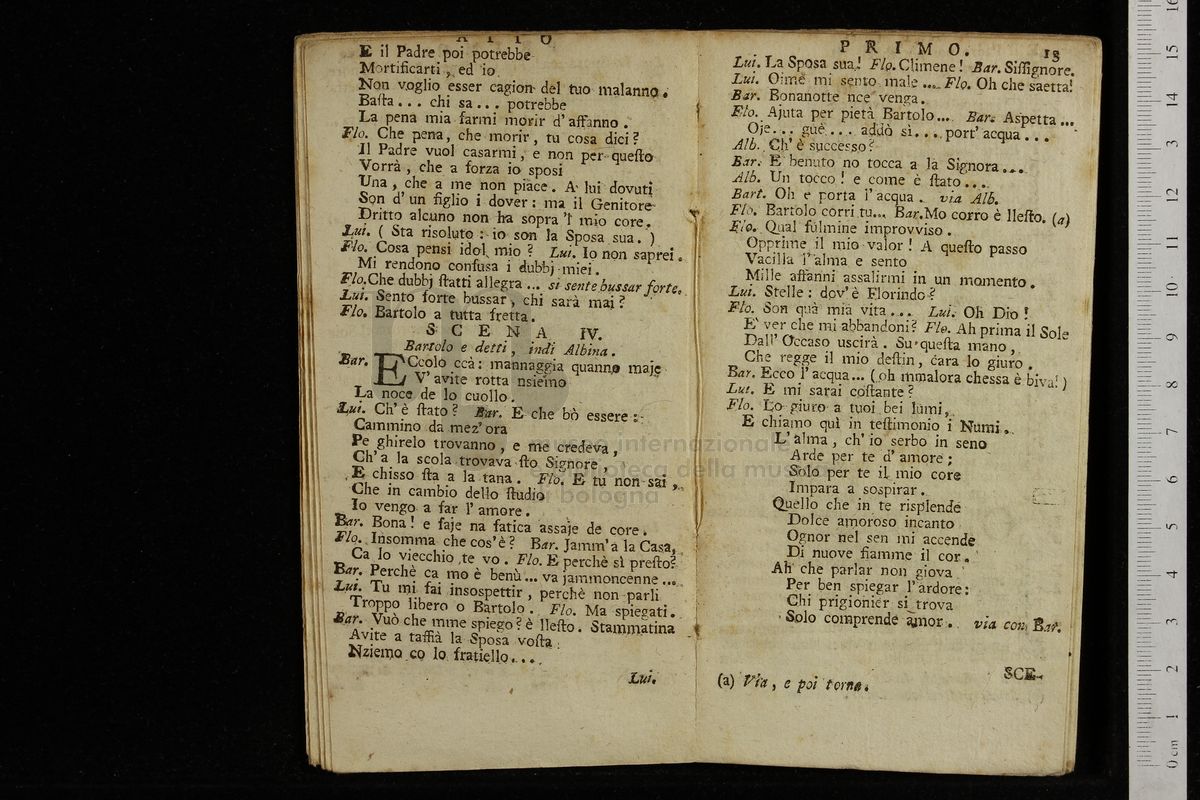 ATTO
E il Padre poi potrebbe
Mortificarti, ed io
Non voglio esser cagion del tuo malanno.
Baſta... chi sa... potrebbe
La pena mia farmi morir d'affanno.
Flo. Che pena, che morir, tu cosa dici?
Il Padre vuol casarmi, e non per queſto
Vorrà, che a forza io sposi
Una, che a me non piace. A lui dovuti
Son d'un figlio i dover: ma il Genitore
Dritto alcuno non ha sopra 'l mio core.
Lui. (Sta risoluto: io son la Sposa sua.)
Flo. Cosa pensi idol mio? Lui. Io non saprei.
Mi rendono confusa i dubbj miei.
Flo. Che dubbj ſtatti allegra... si sente bussar forte.
Lui. Sento forte bussar, chi sarà mai?
Flo. Bartolo a tutta fretta.
SCENA IV.
Bartolo e detti, indi Albina.
Bar. ECcolo ccà: mannaggia quanno maje
V'avite rotta nsiemo
La noce de lo cuollo.
Lui. Ch'è ſtato? Bar. E che bò essere:
Cammino da mez'ora
Pe ghirelo trovanno, e me credeva,
Ch'a la scola trovava ſto Signore,
E chisso ſta a la tana. Flo. E tu non sai,
Che in cambio dello ſtudio
Io vengo a far l'amore.
Bar. Bona! e faje na fatica assaje de core.
Flo. Insomma che cos'è? Bar. Jamm'a la Casa,
Ca lo viecchio te vo. Flo. E perchè sì preſto?
Bar. Perchè ca mo è benù... va jammoncenne...
Lui. Tu mi fai insospettir, perchè non parli
Troppo libero o Bartolo. Flo. Ma spiegati.
Bar. Vuò che mme spiego? è lleſto. Stammatina
Avite a taffià la Sposa voſta
Nziemo co lo fratiello....
Lui.
PRIMO. 13
Lui. La Sposa sua! Flo. Climene! Bar. Siſſignore.
Lui. Oimè mi sento male... Flo. Oh che saetta!
Bar. Bonanotte nce venga.
Flo. Ajuta per pietà Bartolo... Bar. Aspetta...
Oje... guè... addò sì.... port'acqua...
Alb. Ch'è successo?
Bar. E benuto no tocca a la Signora...
Alb. Un tocco! e come è ſtato...
Bart. Oh e porta l'acqua. via Alb.
Flo. Bartolo corri tu... Bar. Mo corro è lleſto. (a)
Flo. Qual fulmine improvviso.
Opprime il mio valor! A queſto passo
Vacilla l'alma e sento
Mille affanni assalirmi in un momento.
Lui. Stelle: dov'è Florindo?
Flo. Son quà mia vita... Lui. Oh Dio!
E ver che mi abbandoni? Flo. Ah prima il Sole
Dall'Occaso uscirà. Su queſta mano,
Che regge il mio deſtin, cara lo giuro.
Bar. Ecco l'acqua... (oh mmalora chessa è biva!)
Lui. E mi sarai coſtante?
Flo. Lo giuro a tuoi bei lumi,
E chiamo quì in teſtimonio i Numi.
L'alma, ch'io serbo in seno
Arde per te d'amore;
Solo per te il mio core
Impara a sospirar.
Quello che in te risplende
Dolce amoroso incanto
Ognor nel sen mi accende
Di nuove fiamme il cor.
Ah che parlar non giova
Per ben spiegar l'ardore:
Chi prigionier si trova
Solo comprende amor. via con Bar.
(a) Via, e poi torna.
SCE-
museo internazionale
e biblioteca della musica
di bologna